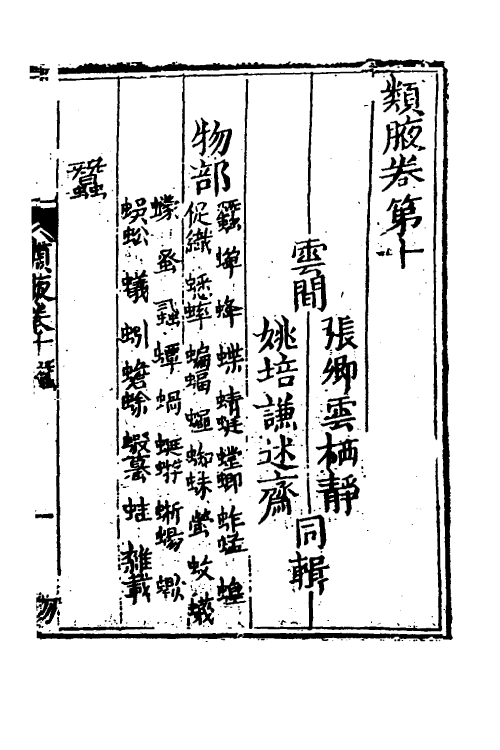 類腋卷第十
雲間
張卿雲栖靜
姚培謙述齋
同輯
物部
蠶 蟬 蜂 蝶 蜻蜓 螳螂 蚱蜢 蝗
促織 蟋蟀 蝙蝠 蠅 蜘蛛 螢 蚊 蟻
蠓 蚤 蝨 蟫 蝸 蜉蝣 蜥蜴
蜈蚣 蟻 蚓 蟾蜍 蝦蟇 蛙 雜載
蠶
類腋卷十 蠶
一
物